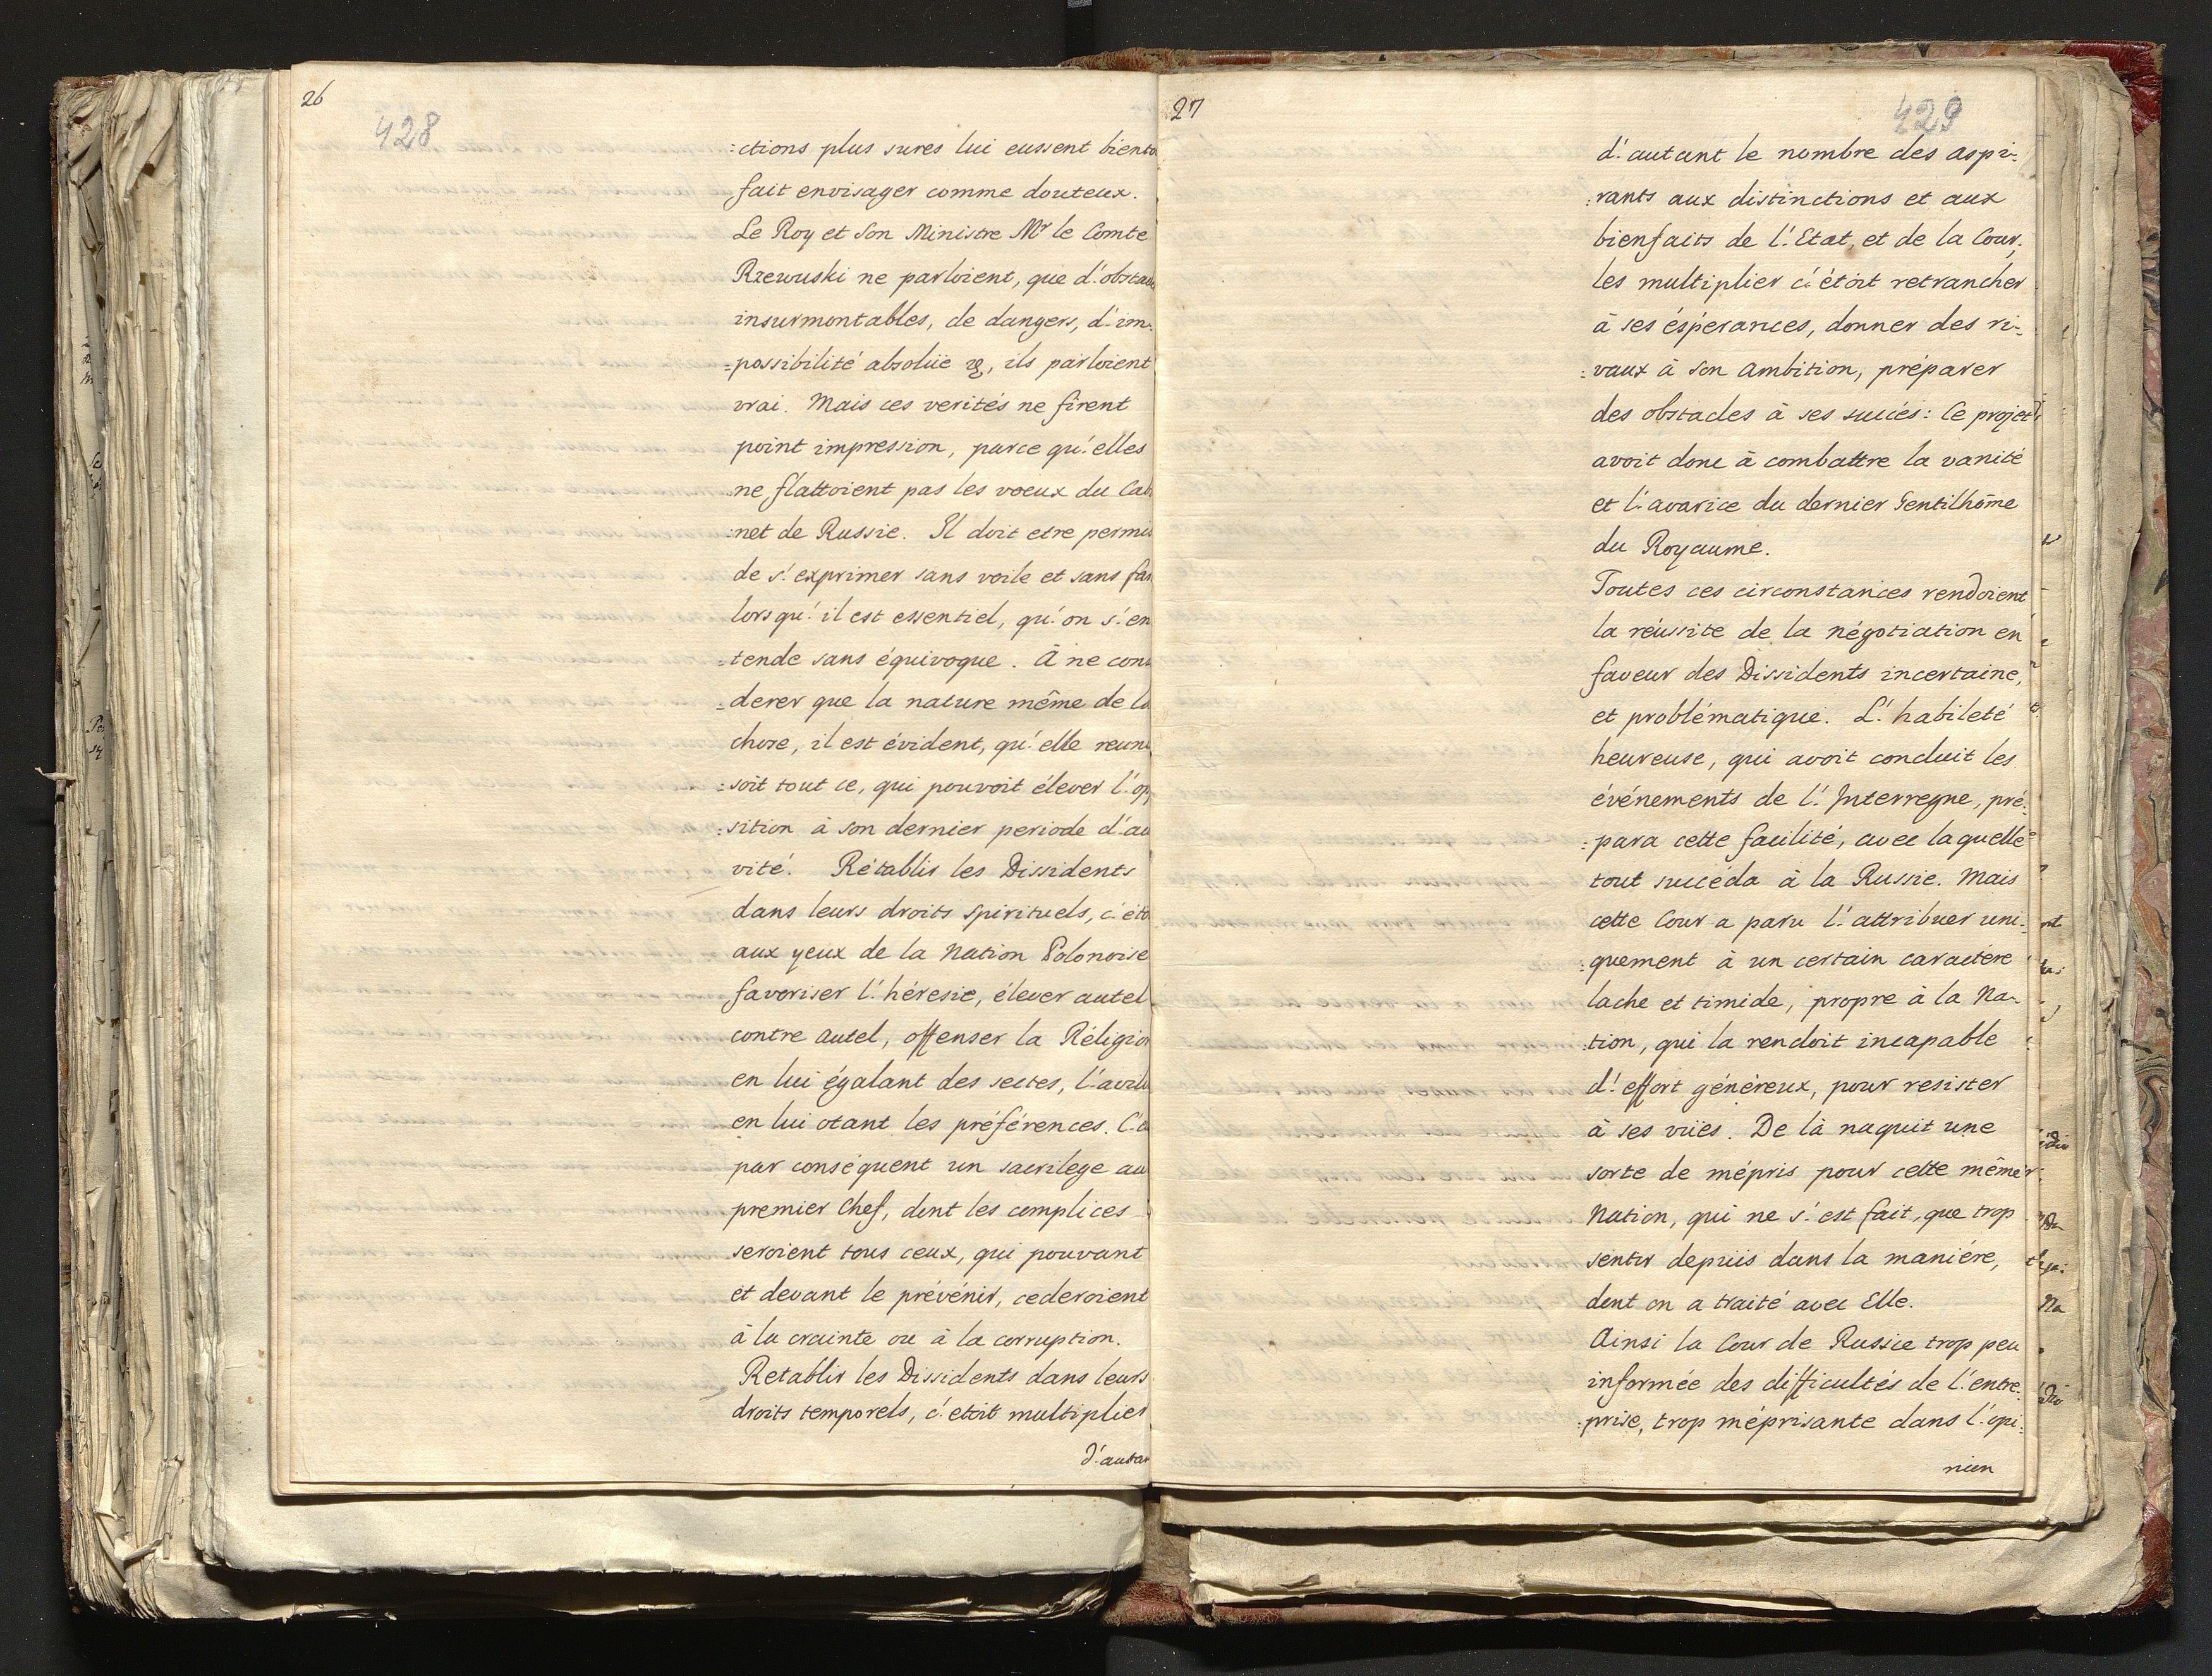 26
428
:ctions plus sures lui eussent biento
fait envisager comme douteux.
Le Roy et Son Ministre Mr le Comte
Rzewuski ne parloient, que d'obstac
insurmontables, de dangers, d'im:
=possibilité absolüe &, ils parloient
vrai. Mais ces verités ne firent
point impression, parce qu'elles
ne flattoient pas les voeux du Cabi
:net de Russie. Il doit etre permis
de s'exprimer sans voile et sans far
lorsqu'il est essentiel, qu'on s'en
=tende sans équivoque. À ne cons
=derer que la nature même de la
chose, il est évident, qu'elle reuni
:soit tout ce, qui pouvoit élever l'op
:sition à son dernier periode d'ac
vité. Rétablir les Dissidents
dans leurs droits spirituels, c'éto
aux yeux de la Nation Polonoise
favoriser l'héresie, élever autel
contre autel, offenser la Réligion
en lui égalant des sectes, l'avili
en lui otant les préférences. C'é
par conséquent un sacrilege au
premier Chef, dont les complices
seroient tous ceux, qui pouvant
et devant le prévénir, cederoient
à la crainte ou à la corruption.
Retablir les Dissidents dans leurs
droits temporels, c'etoit multiplier
d'autan
27
429
d'autant le nombre des aspi:
:rants aux distinctions et aux
bienfaits de l'Etat, et de la Cour,
les multiplier c'étoit retrancher
à ses éspérances, donner des ri:
:vaux à son ambition, préparer
des obstacles à ses succés: Ce projet
avoit donc à combattre la vanité
et l'avarice du dernier Gentilhõme
du Royaume.
Toutes ces circonstances rendoient
la réussite de la négotiation en
faveur des Dissidents incertaine,
et problématique. L'habileté
heureuse, qui avoit conduit les
événements de l'Interregne, pré:
:para cette facilité, avec laquelle
tout succéda à la Russie. Mais
cette Cour a paru l'attribuer uni:
:quement à un certain caractére
lache et timide, propre à la Na:
:tion, qui la rendoit incapable
d'effort généreux, pour resister
à ses vües. De là naquit une
sorte de mépris pour cette même
Nation, qui ne s'est fait, que trop
sentir depuis dans la maniére,
dont on a traité avec Elle.
Ainsi la Cour de Russie trop peu
informée des difficultés de l'entre:
:prise, trop méprisante dans l'opi:
nion